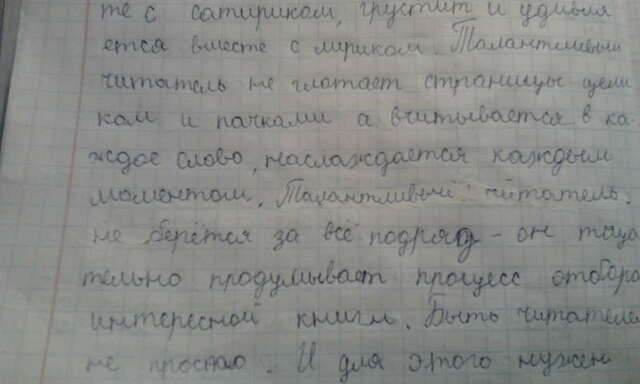 те с сатириком, грустит и удивля
ется вместе с лириком. Талантливый
читатель не глотает страницы цели
ком и пачками а вчитывается в ка-
ждое слово, наслаждается каждым
моментом. Талантливый читатель
не берётся за всё подряд - он тща
тельно продумывает процесс отбора
интересной книги. Быть читателем
не просто. И для этого нужен